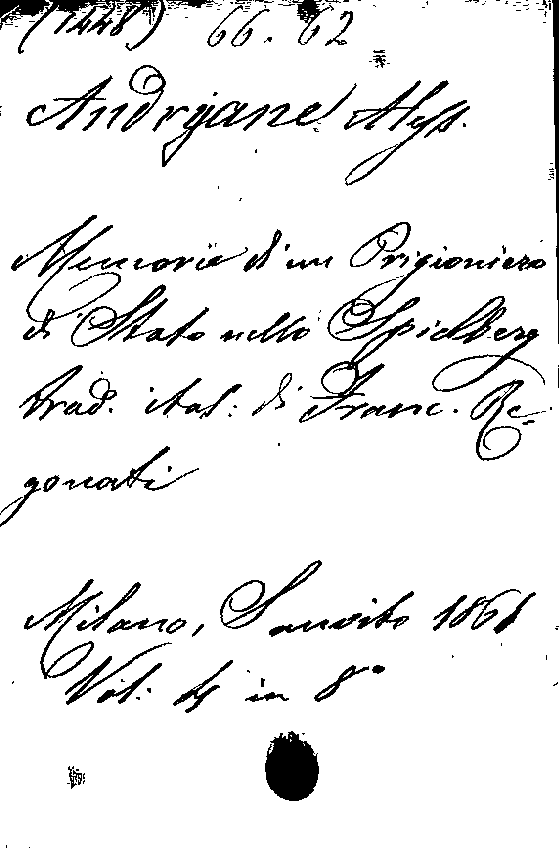 (1448) 66. 62
Andryane Aless.
Memorie di un Prigioniero
di Stato nello Spielberg
trad. ital: di Franc. Re-
gonati
Milano, Sanvito 1861
Vol: 4 in 8°